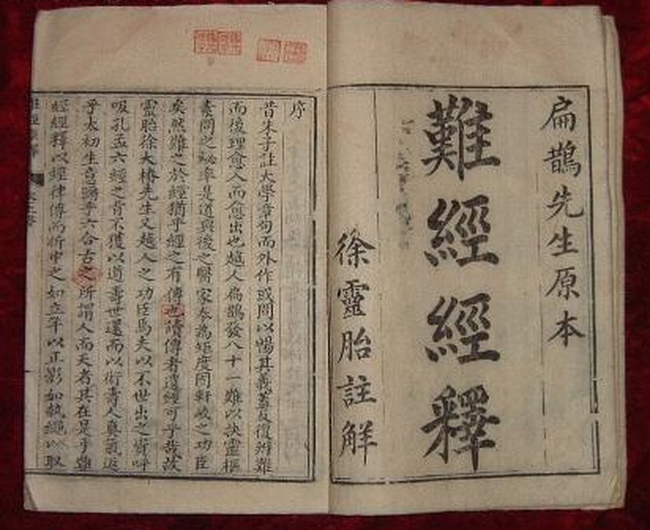 扁鵲先生原本
難經經釋
徐靈胎註解
序
昔朱子註大學章句而外作或問以暢其義蓋反復辨難
而後理愈入而愈出也越人扁鵲發八十一難以訣靈樞
素問之秘率是道與後之醫家奉為矩度罔軒岐之功臣
矣然難之於經猶乎經之有傳也讀傳者遺經可乎哉故
靈胎徐大椿先生又越人之功臣焉夫以不世出之資呼
吸孔孟六經之旨不獲以道壽世還而以術壽人真氣返
乎太初生意賜乎六合古之所謂人而天者其在是乎難
經經釋以經律傳而折中之如立竿以正影如執繩以取